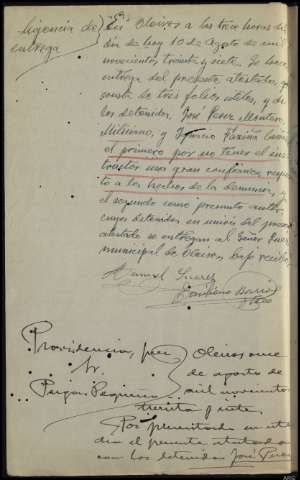 Diligencia de
entrega
En Oleiros a las tres horas del
día de hoy 10 de Agosto de mil
novecientos treinta y siete. Se hace
entrega del presente, atestado, que
consta de tres folios útiles, y de
los detenidos, José Perez Montero,
Miliciano, y Ignacio Fariña
el primero por no tener el ins-
tructor una gran confianza, respec
to a los hechos de la denuncia, y
el segundo como presunto autor
cuyos detenidos en unión del presente
atestado se entregan al Señor Juez
municipal de Oleiros, bajo recibo.
Manuel Suarez
Emiliano
Providencia, Juez
Sr.
Oleiros once
de agosto de
mil novecientos
treinta y siete.
Por presentado en este
día el presente atestado
con los detenidos José Perez